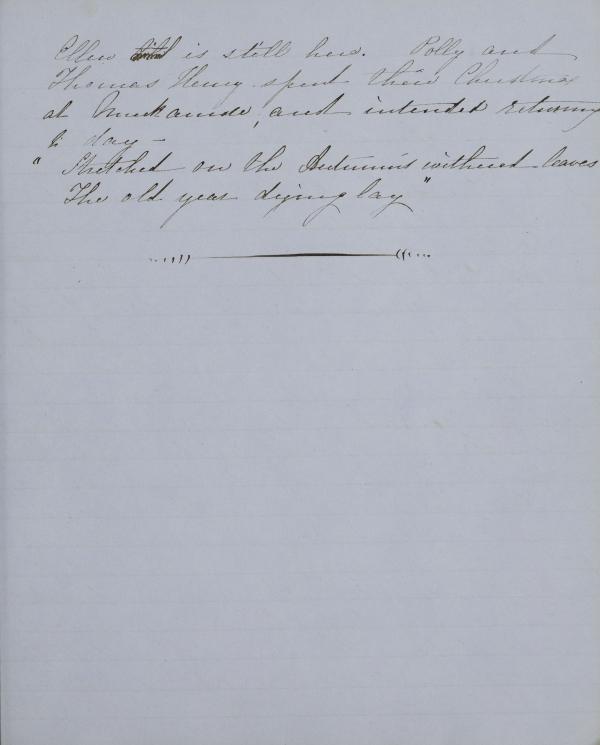 Ellen is still here. Polly and
Thomas Henry spent their Christmas
at and intended returning
to day –
" Stretched on the Autumn's withered leaves
The old year dying lay"